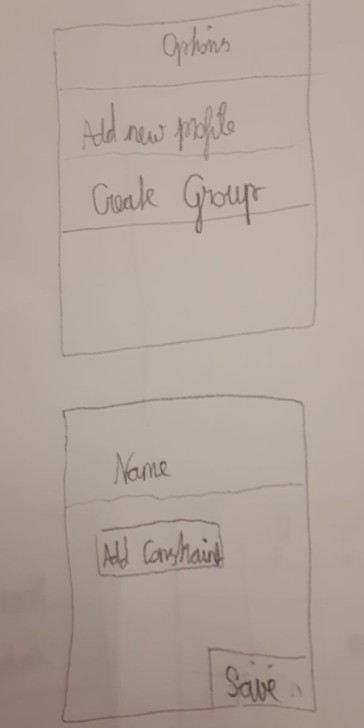 Options
Add new profile
Create Group
Name
Add Constraint
Save